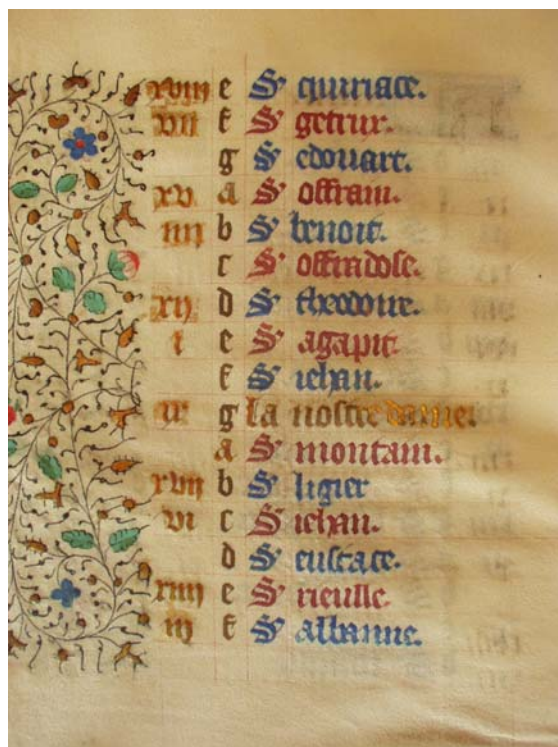 xviii e S' quiriace.
vii f S' getrux.
g S' edouart.
xv a S' offrain.
iiii b S' benoit.
c S' offrodose.
xii d S' theodoire.
i e S' agapit.
f S' iehan.
ix g la nostre dame.
a S' montain.
xvii b S' ligier
vi c S' iehan.
d S' eustace.
xiiii e S' rieulle.
iii f S' albanne.